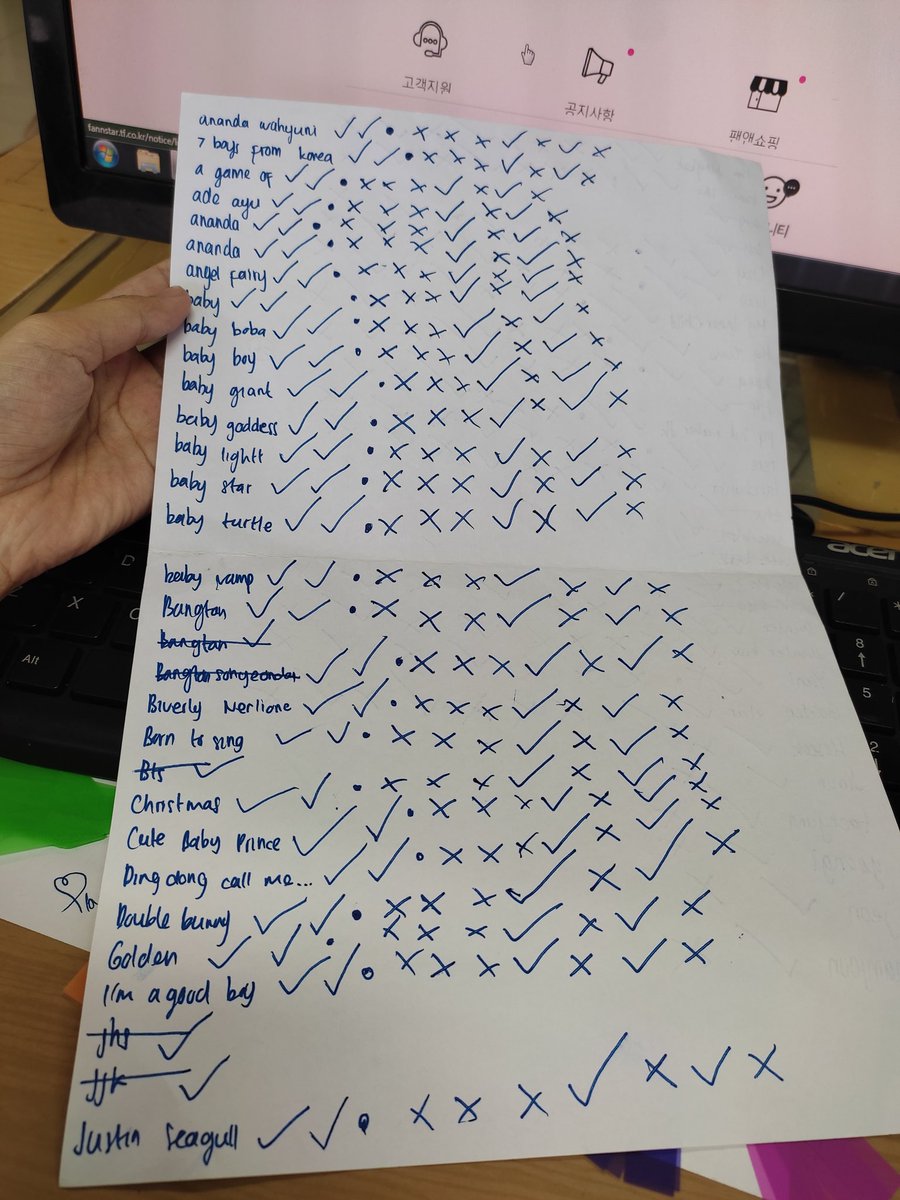 고객지원
공지사항
팬앤쇼핑
fannstar.tf.co.kr/notice/
ananda wahyuni ✓ ✓ • x x x ✓ x ✓ x
7 boys from korea ✓ ✓ • x x x ✓ x ✓ x
a game of ✓ ✓ • x x x ✓ x ✓ x
ade ayu ✓ ✓ • x x x ✓ x ✓ x
ananda ✓ ✓ • x x x ✓ x ✓ x
ananda ✓ ✓ • x x x ✓ x ✓ x
angel fairy ✓ ✓ • x x x ✓ x ✓ x
baby ✓ ✓ • x x x ✓ x ✓ x
baby boba ✓ ✓ • x x x ✓ x ✓ x
baby boy ✓ ✓ • x x x ✓ x ✓ x
baby giant ✓ ✓ • x x x ✓ x ✓ x
baby goddess ✓ ✓ • x x x ✓ x ✓ x
baby lightt ✓ ✓ • x x x ✓ x ✓ x
baby star ✓ ✓ • x x x ✓ x ✓ x
baby turtle ✓ ✓ • x x x ✓ x ✓ x
baby vamp ✓ ✓ • x x x ✓ x ✓ x
Bangtan ✓ ✓ • x x x ✓ x ✓ x
Bangtan ✓
Bangtan sonyeondan ✓ ✓ • x x x ✓ x ✓ x
Biverly Nerlione ✓ ✓ • x x x ✓ x ✓ x
Born to sing ✓ ✓ • x x x ✓ x ✓ x
Bts ✓
Christmas ✓ ✓ • x x x ✓ x ✓ x
Cute Baby Prince ✓ ✓ • x x x ✓ x ✓ x
Ding dong call me... ✓ ✓ • x x x ✓ x ✓ x
Double bunny ✓ ✓ • x x x ✓ x ✓ x
Golden ✓ ✓ • x x x
I'm a good boy ✓ ✓ • x x x ✓ x ✓ x
jhs ✓
jjk ✓
Justin Seagull ✓ ✓ • x x x ✓ x ✓ x
acer
Alt